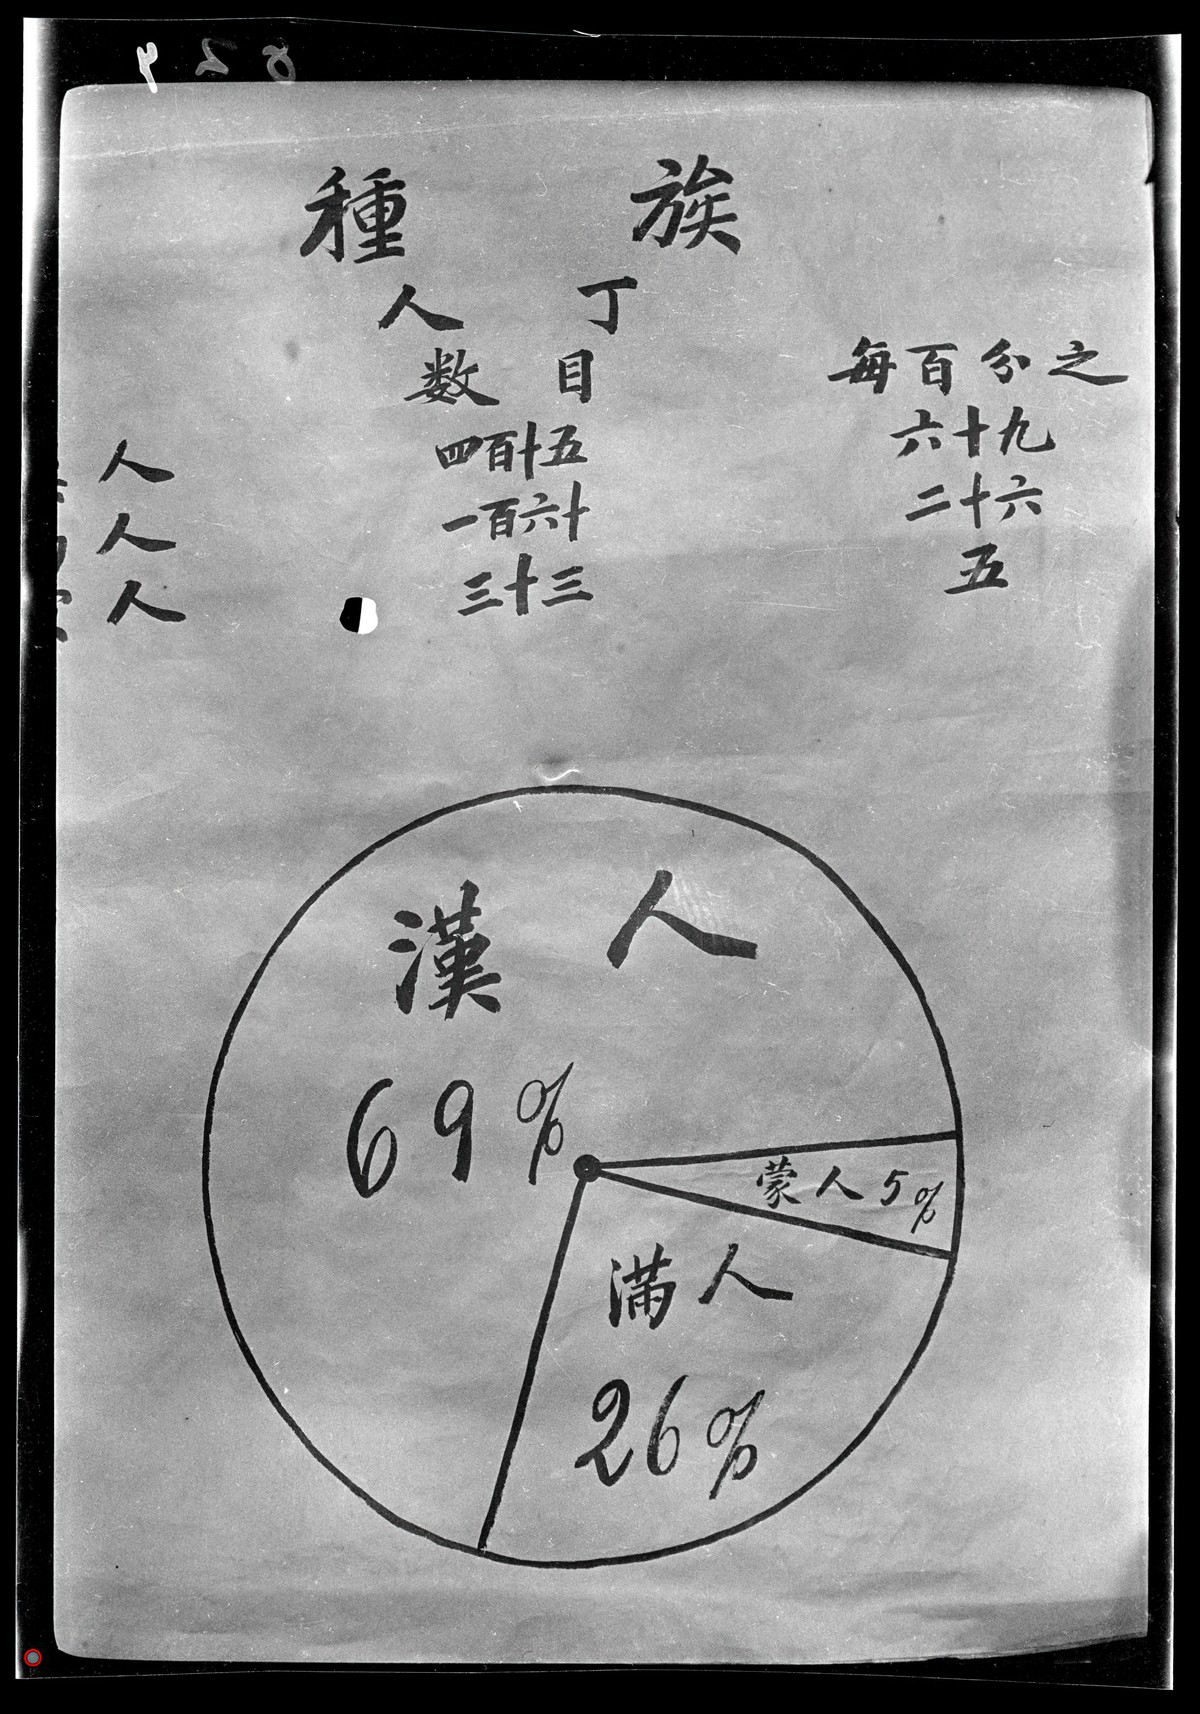 種族
人丁
数目
每百分之
人 四百十五 六十九
人 一百六十 二十六
人 三十三 五
漢人
69%
蒙人5%
滿人
26%